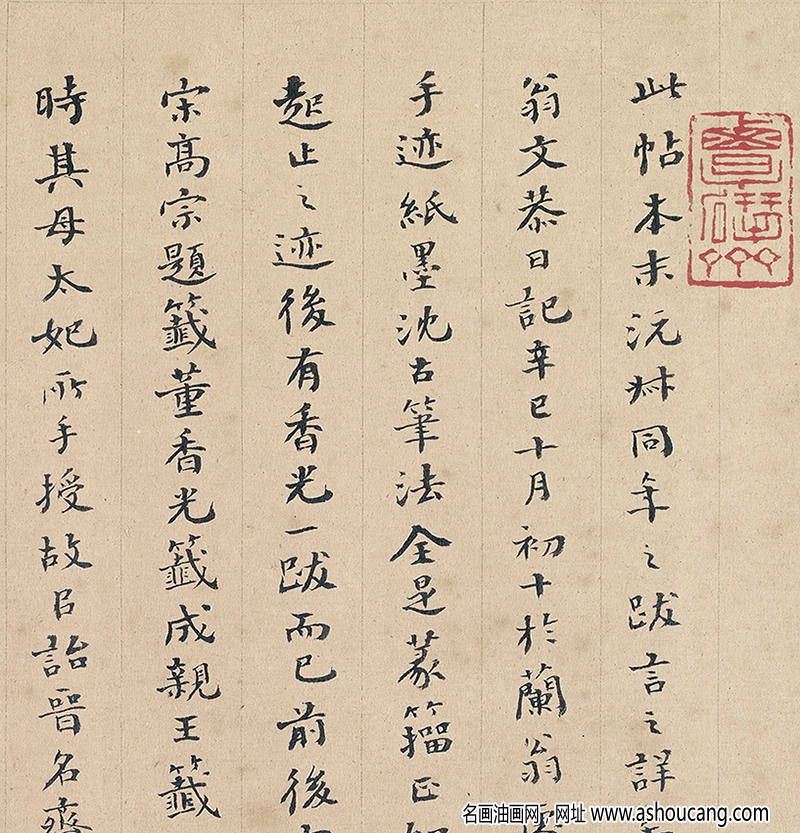 此帖本末沅叔同年之跋言之詳
翁文恭日記辛巳十月初十於蘭翁
手迹紙墨沈古筆法全是篆籀正如
起止之迹後有香光一跋而已前後
宋高宗題籤董香光籤成親王籤
時其母太妃所手授故曰詒晉名齋
名画油画网，网址 www.ashoucang.com